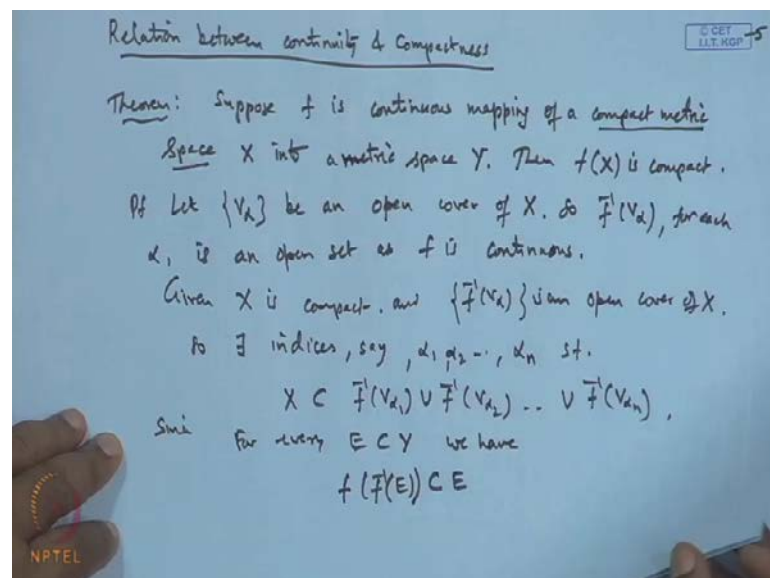 Relation between continuity & Compactness
© CET
I.I.T. KGP
-5
Theorem: Suppose f is continuous mapping of a compact metric
Space X into a metric space Y. Then f(X) is compact.
Pf Let {Vα} be an open cover of X. So f⁻¹(Vα), for each
α, is an open set as f is continuous.
Given X is compact. and {f⁻¹(Vα)} is an open cover of X.
So ∃ indices, say, α₁, α₂ .., αₙ st.
X ⊂ f⁻¹(Vα₁) ∪ f⁻¹(Vα₂) .. ∪ f⁻¹(Vαₙ),
Since For every E ⊂ Y we have
f(f⁻¹(E)) ⊂ E
NPTEL